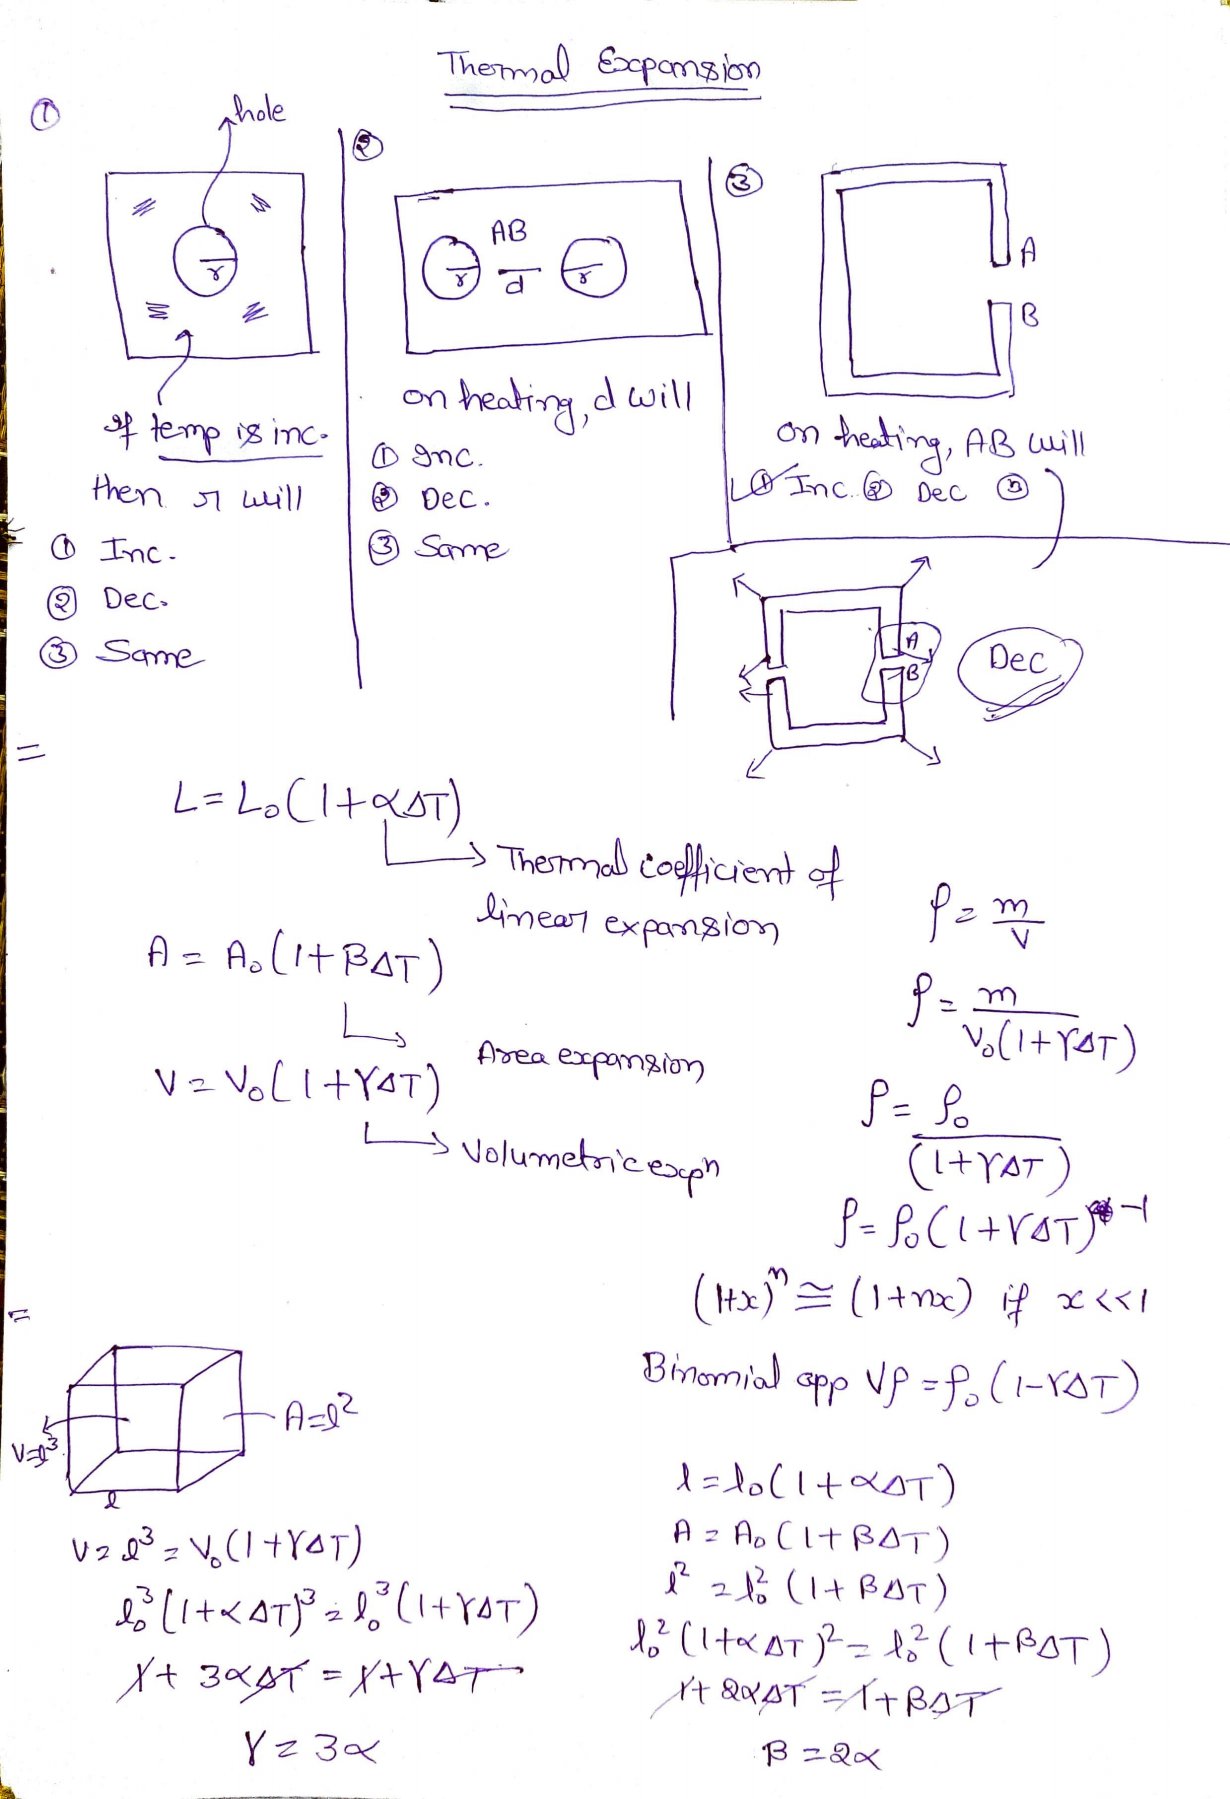 Thermal Expansion
①
hole
r
If temp is inc.
then r will
① Inc.
② Dec.
③ Same
②
AB
r d r
on heating, d will
① Inc.
② Dec.
③ Same
③
A
B
on heating, AB will
① Inc. ② Dec ③
A
B
Dec
L = L₀(1+α∆T)
Thermal coefficient of
linear expansion
A = A₀(1+β∆T)
Area expansion
V = V₀(1+γ∆T)
Volumetric expⁿ
ρ = m/V
ρ = m/V₀(1+γ∆T)
ρ = ρ₀/(1+γ∆T)
ρ = ρ₀(1+γ∆T)⁻¹
(1+x)ⁿ ≅ (1+nx) if x<<1
Binomial app ρ = ρ₀(1-γ∆T)
A=l²
V=l³
l
V = l³ = V₀(1+γ∆T)
l₀³(1+α∆T)³ = l₀³(1+γ∆T)
1+3α∆T = 1+γ∆T
γ = 3α
l = l₀(1+α∆T)
A = A₀(1+β∆T)
l² = l₀²(1+β∆T)
l₀²(1+α∆T)² = l₀²(1+β∆T)
1+2α∆T = 1+β∆T
β = 2α